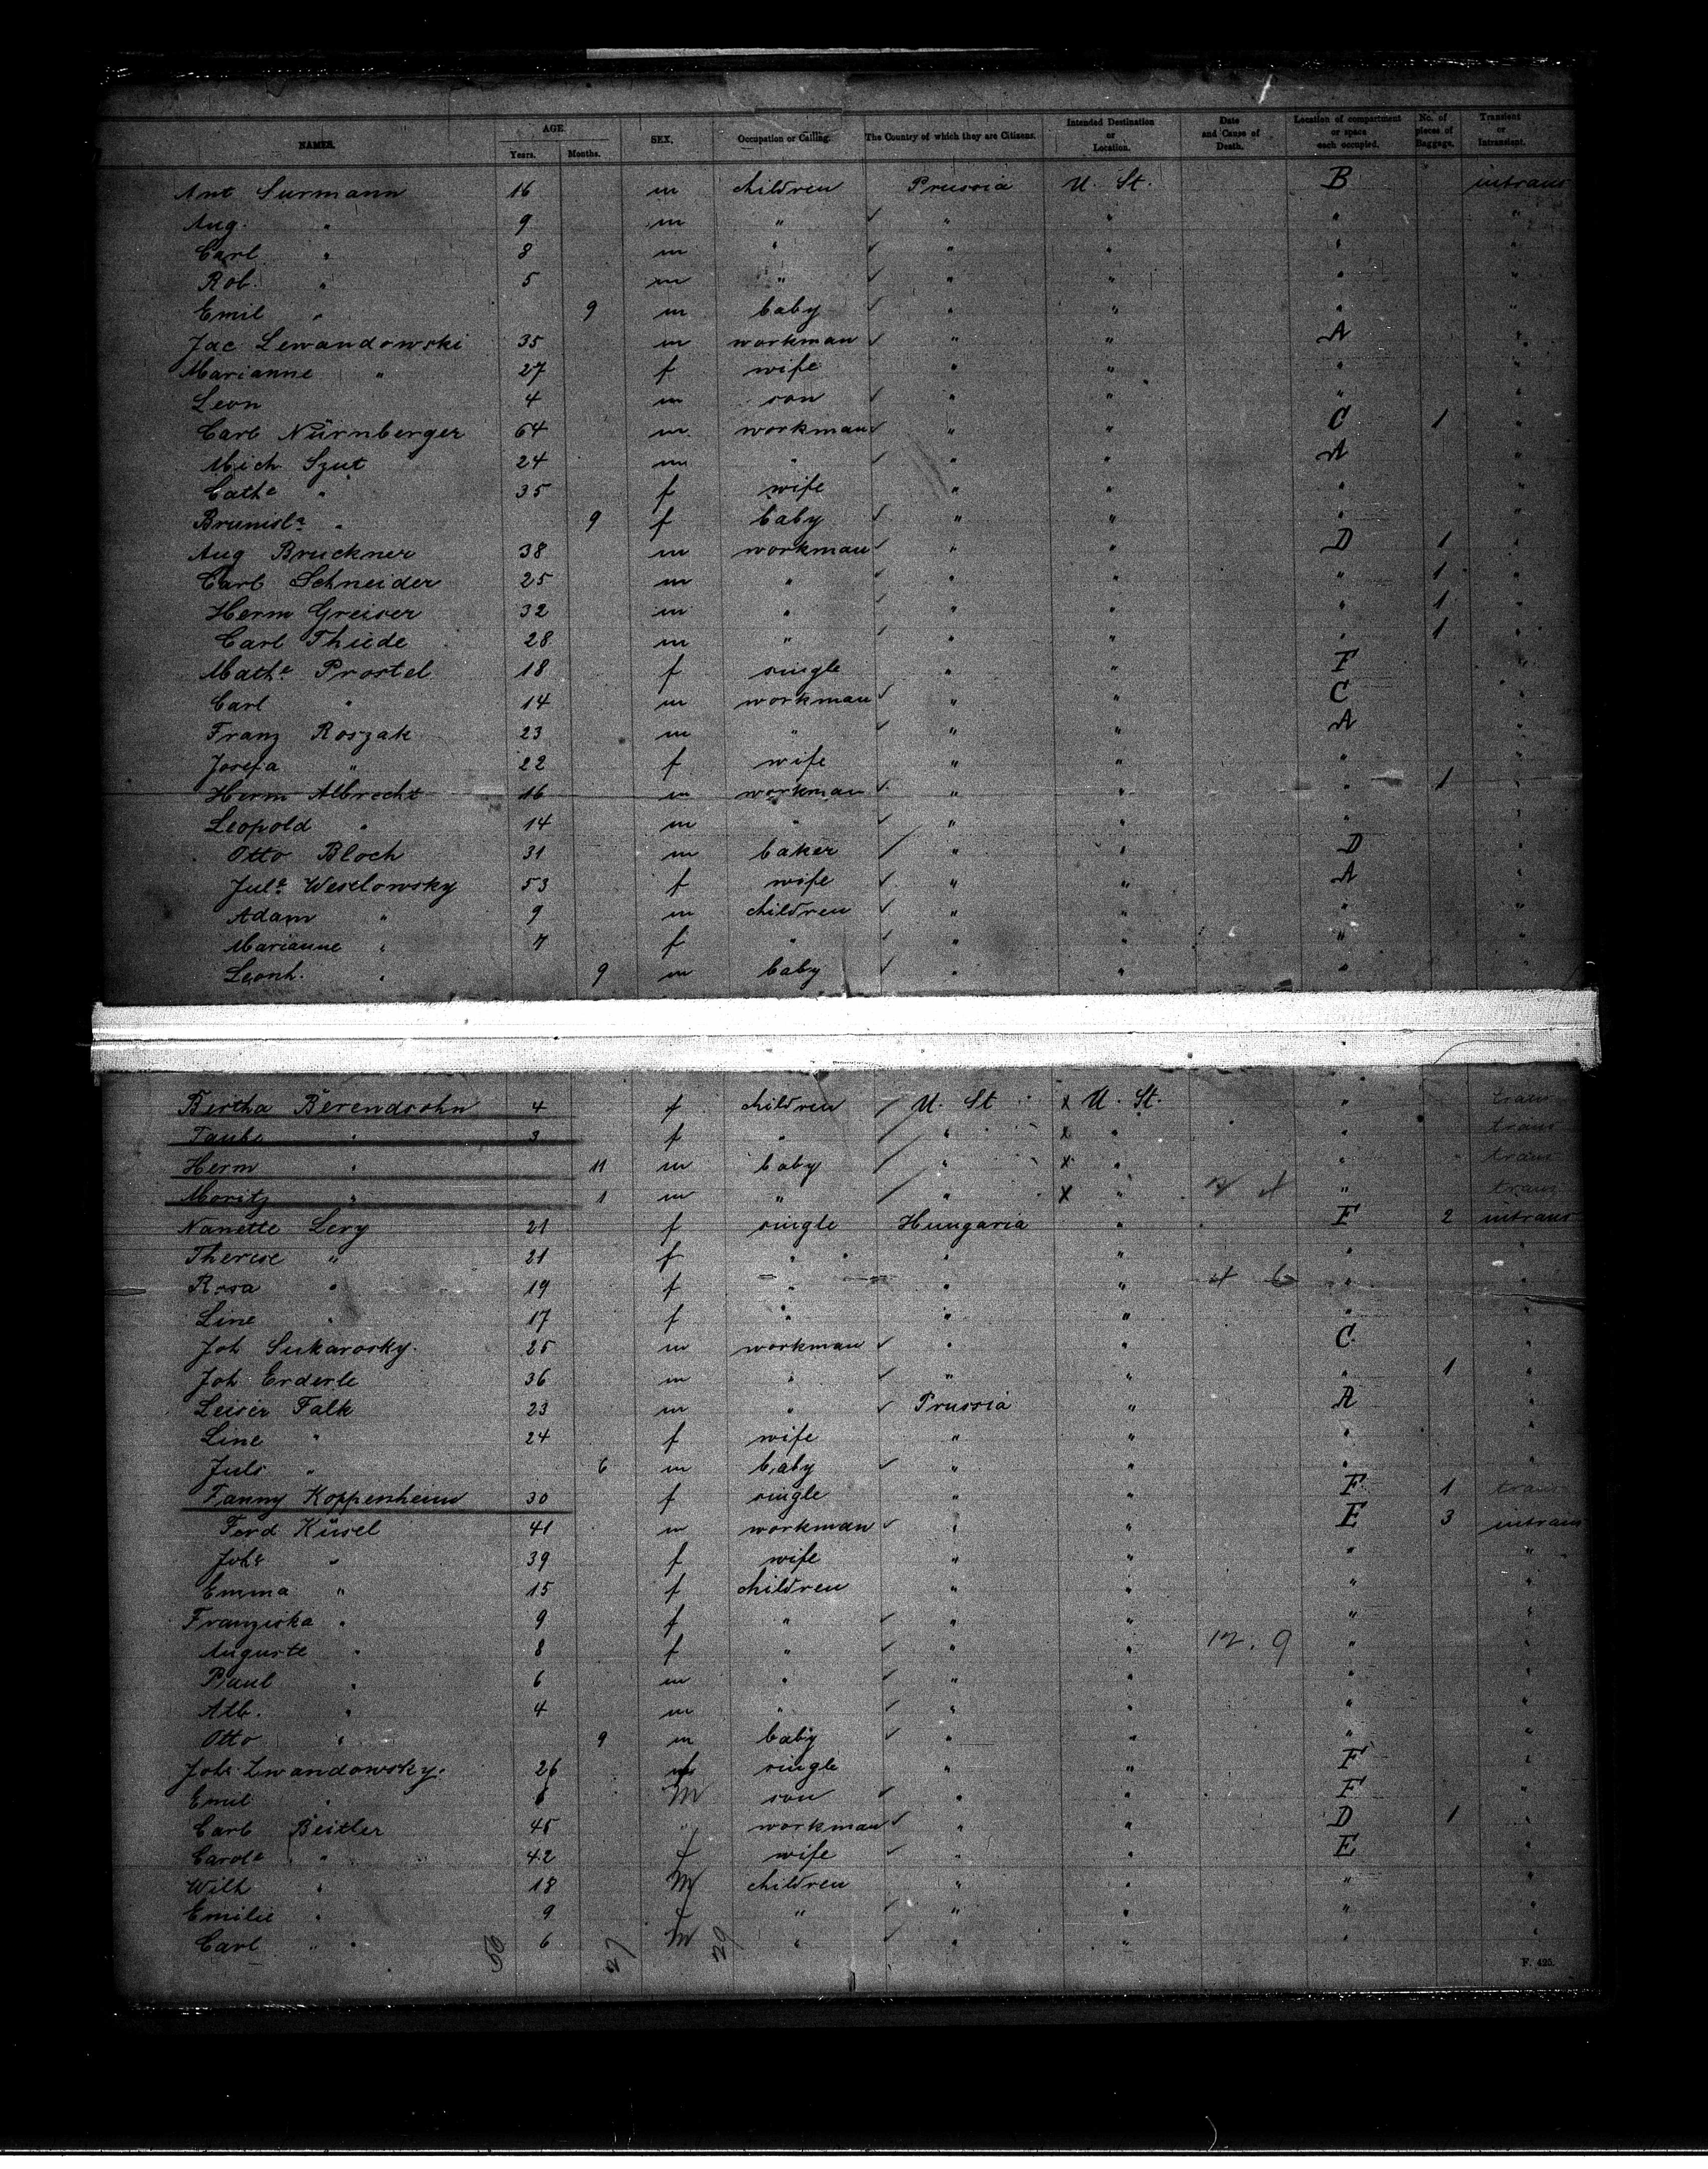 NAMES. AGE. Years. Months. SEX. Occupation or Calling. The Country of which they are Citizens. Intended Destination or Location. Date and Cause of Death. Location of compartment or space each occupied. No. of pieces of Baggage. Transient or Intransient.
Ant Surmann 16 m children Prussia U. St. B intrans
Aug. " 9 m " ✓ " " " "
Carl " 8 m " ✓ " " " "
Rob. " 5 m " ✓ " " " "
Emil " 9 m baby ✓ " " " "
Jac Lewandowski 35 m workman ✓ " " A "
Marianne " 27 f wife " " " "
Leon 4 m son ✓ " " " "
Carl Nürnberger 64 m workman ✓ " " C 1 "
Mich Szut 24 m " ✓ " " A "
Cathe " 35 f wife " " " "
Brunisla " 9 f baby ✓ " " " "
Aug Bruckner 38 m workman ✓ " " D 1 "
Carl Schneider 25 m " ✓ " " " 1 "
Herm Greiser 32 m " ✓ " " " 1 "
Carl Thiede 28 m " ✓ " " " 1 "
Mathe Prostel 18 f single " " F "
Carl " 14 m workman ✓ " " C "
Franz Roszak 23 m " ✓ " " A "
Josefa " 22 f wife " " " "
Herm Albrecht 16 m workman ✓ " " " 1 "
Leopold " 14 m " ✓ " " " "
Otto Bloch 31 m baker / " " D "
Jule Weselowsky 53 f wife ✓ " " A "
Adam " 9 m children ✓ " " " "
Marianne " 7 f " ✓ " " " "
Leonh. " 9 m baby ✓ " " " "
Bertha Berendsohn 4 f children / U. St x U. St. " trans
Taube " 3 f " / " x " " trans
Herm " 11 m baby / " x " " trans
Moritz " 1 m " / " x " " trans
Nanette Levy 21 f single Hungaria " F 2 intrans
Therese " 21 f " " " " "
Rosa " 19 f " " " " "
Line " 17 f " " " " "
Joh Sukarosky. 25 m workman ✓ " " C "
Joh Erderle 36 m " ✓ " " " 1 "
Leiser Falk 23 m " ✓ Prussia " A "
Line " 24 f wife " " " "
Juls " 6 m baby ✓ " " " "
Fanny Koppenheim 30 f single " " F 1 trans
Ferd Küsel 41 m workman ✓ " " E 3 intrans
Johe " 39 f wife " " " "
Emma " 15 f children " " " "
Franziska " 9 f " ✓ " " " "
Auguste " 8 f " ✓ " " 12. 9 " "
Paul " 6 m " ✓ " " " "
Alb. " 4 m " ✓ " " " "
Otto " 9 m baby ✓ " " " "
Johe Lwandowsky. 26 f single " " F "
Emil " 6 M son ✓ " " F "
Carl Beitler 45 " workman ✓ " " D 1 "
Carole " 42 f wife ✓ " " E "
Wilh " 18 M children " " " "
Emilie " 9 f " ✓ " " " "
Carl " 6 M " ✓ " " " "
56 27 29
F. 425.